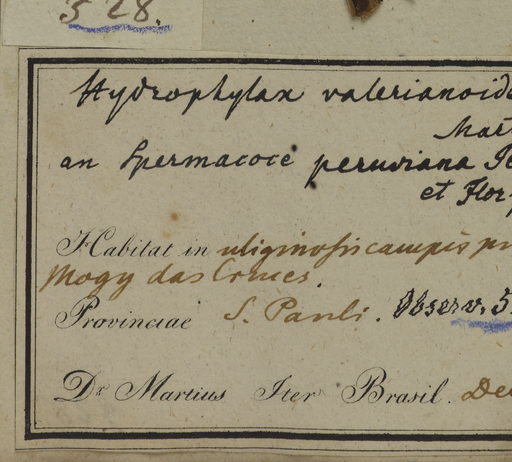 528.
Hydrophylax valerianoid
Mart
an Spermacoce peruviana Pe
et Flor.
Habitat in uliginosis campis pr
Mogy das Cruces.
Provinciae S. Pauli. Observ. 5
Dr Martius Iter Brasil. Dec